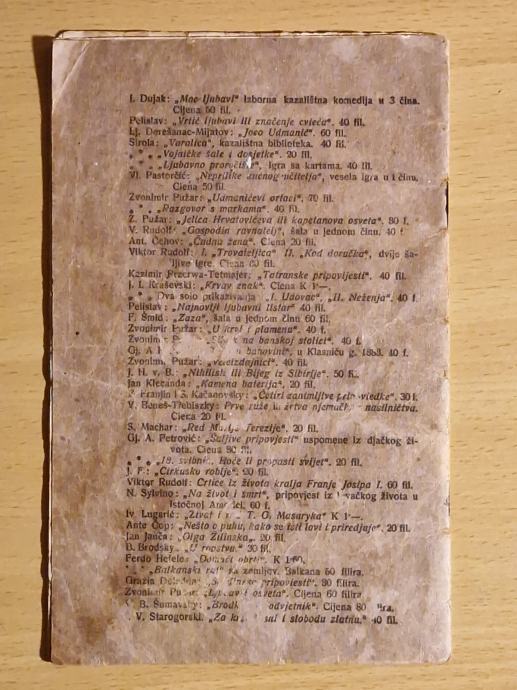 I. Dujak: „Moć ljubavi" izborna kazalištna komedija u 3 čina.
Cijena 50 fil.
Pelislav: „Vrtić ljubavi ili značenje cvieća". 40 fil.
Lj. Derešanac-Mijatov: „Joco Udmanić". 60 fil.
Širola: „Varalica", kazalištna biblioteka. 40 fil.
„ „ „Vojničke šale i dosjetke". 20 fil.
„ „ „Ljubavno proročište". Igra sa kartama. 40 fil.
Vl. Pastorčić: „Neprilike kućnog učitelja", vesela igra u 1 činu.
Ciena 50 fil.
Zvonimir Pužar: „Udmanićevi ortaci". 70 fil.
„ „ „Razgovor s markama". 40 fil.
Z. Pužar: „Jelica Hrvatovićeva ili kapetanova osveta". 80 f.
V. Rudolf: „Gospodin ravnatelj", šala u jednom činu. 40 f.
Ant. Čehov: „Čudna žena". Ciena 20 fil.
Viktor Rudolf: I. „Trovateljica" II. „Kod doručka", dvije ša-
ljive igre. Ciena 60 fil.
Kazimir Przerwa-Tetmajer: „Tatranske pripovijesti". 40 fil.
J. I. Kraševski: „Krvav znak". Ciena K 1·—.
„ „ Dva solo prikazivanja „I. Udovac", „II. Neženja". 40 f.
Pelislav: „Najnoviji ljubavni listar" 40 fil.
F. Šmid: „Zaza", šala u jednom činu 60 fil.
Zvonimir Pužar: „U krvi i plamenu" 40 f.
Zvonimir P na banskoj stolici". 40 f.
Gj. A banovini", u Klasniću g. 1883. 40 f.
Zvonimir Pužar: „Veleizdajnici". 40 f.
J. H. v. B.: „Nihilist ili Bijeg iz Sibirije". 50 fil.
Jan Klecanda: „Kamena baterija". 20 fil.
Franjin i S. Kačanovsky: „Četiri zanimljive pripoviedke". 30 f.
V. Beneš-Třebiszky: Prve ruže ili žrtva njemačkog nasilničtva.
Ciena 20 fil.
S. Machar: „Red Marije Terezije". 20 fil.
Gj. A. Petrović: „Šaljive pripovjesti" uspomene iz djačkog ži-
vota. Ciena 80 fil.
„ „ „18. svibnja. Hoće li propasti svijet". 20 fil.
J. F.: „Cirkusko roblje". 20 fil.
Viktor Rudolf: Crtice iz života kralja Franje Josipa I. 60 fil.
N. Sylvino: „Na život i smrt", pripovjest iz života u
Istočnoj 60 f.
Iv. Lugarić: „Život i T. G. Masaryka" K 1·—.
Ante Čop: „Nešto o puhu, kako se isti lovi i priredjuje". 20 fil.
Jan Janča: „Olga Žilinska". 20 fil.
B. Brodsky: „U ropstvu". 20 fil.
Ferdo Hefele: „Domaći obrt". K 1·60.
„ „ „Balkanski rat" sa zemljov. Balkana 50 filira.
Grazia pripoviesti". 80 filira.
Zvonimir Pužar: osveta". Cijena 60 filira
B. Šumavsky: „Brodk odvjetnik". Cijena 80 filira.
V. Starogorski. „Za k i slobodu zlatnu." 40 fil.